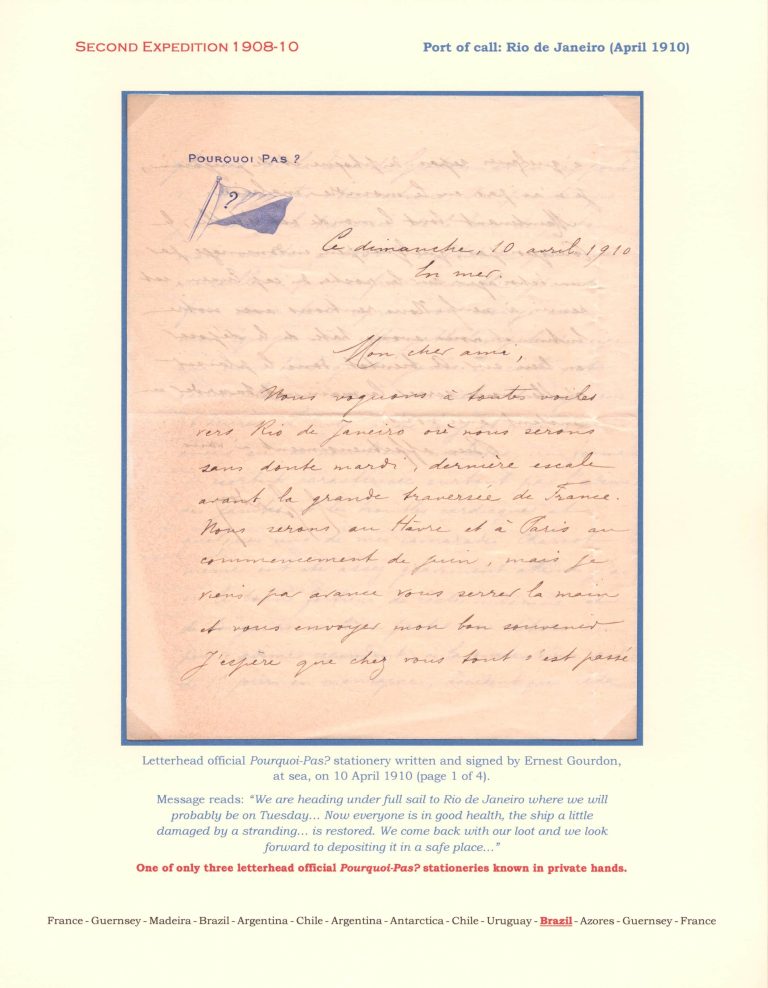 SECOND EXPEDITION 1908-10
Port of call: Rio de Janeiro (April 1910)
POURQUOI PAS ?
?
Ce dimanche, 10 avril 1910
En mer.
Mon cher ami,
Nous voguons à toutes voiles
vers Rio de Janeiro où nous serons
sans doute mardi, dernière escale
avant la grande traversée de France.
Nous serons au Hâvre et à Paris au
commencement de juin, mais je
viens par avance vous serrer la main
et vous envoyer mon bon souvenir.
J'espère que chez vous tout s'est passé
Letterhead official Pourquoi-Pas? stationery written and signed by Ernest Gourdon,
at sea, on 10 April 1910 (page 1 of 4).
Message reads: “We are heading under full sail to Rio de Janeiro where we will
probably be on Tuesday… Now everyone is in good health, the ship a little
damaged by a stranding… is restored. We come back with our loot and we look
forward to depositing it in a safe place…”
One of only three letterhead official Pourquoi-Pas? stationeries known in private hands.
France - Guernsey - Madeira - Brazil - Argentina - Chile - Argentina - Antarctica - Chile - Uruguay - Brazil - Azores - Guernsey - France